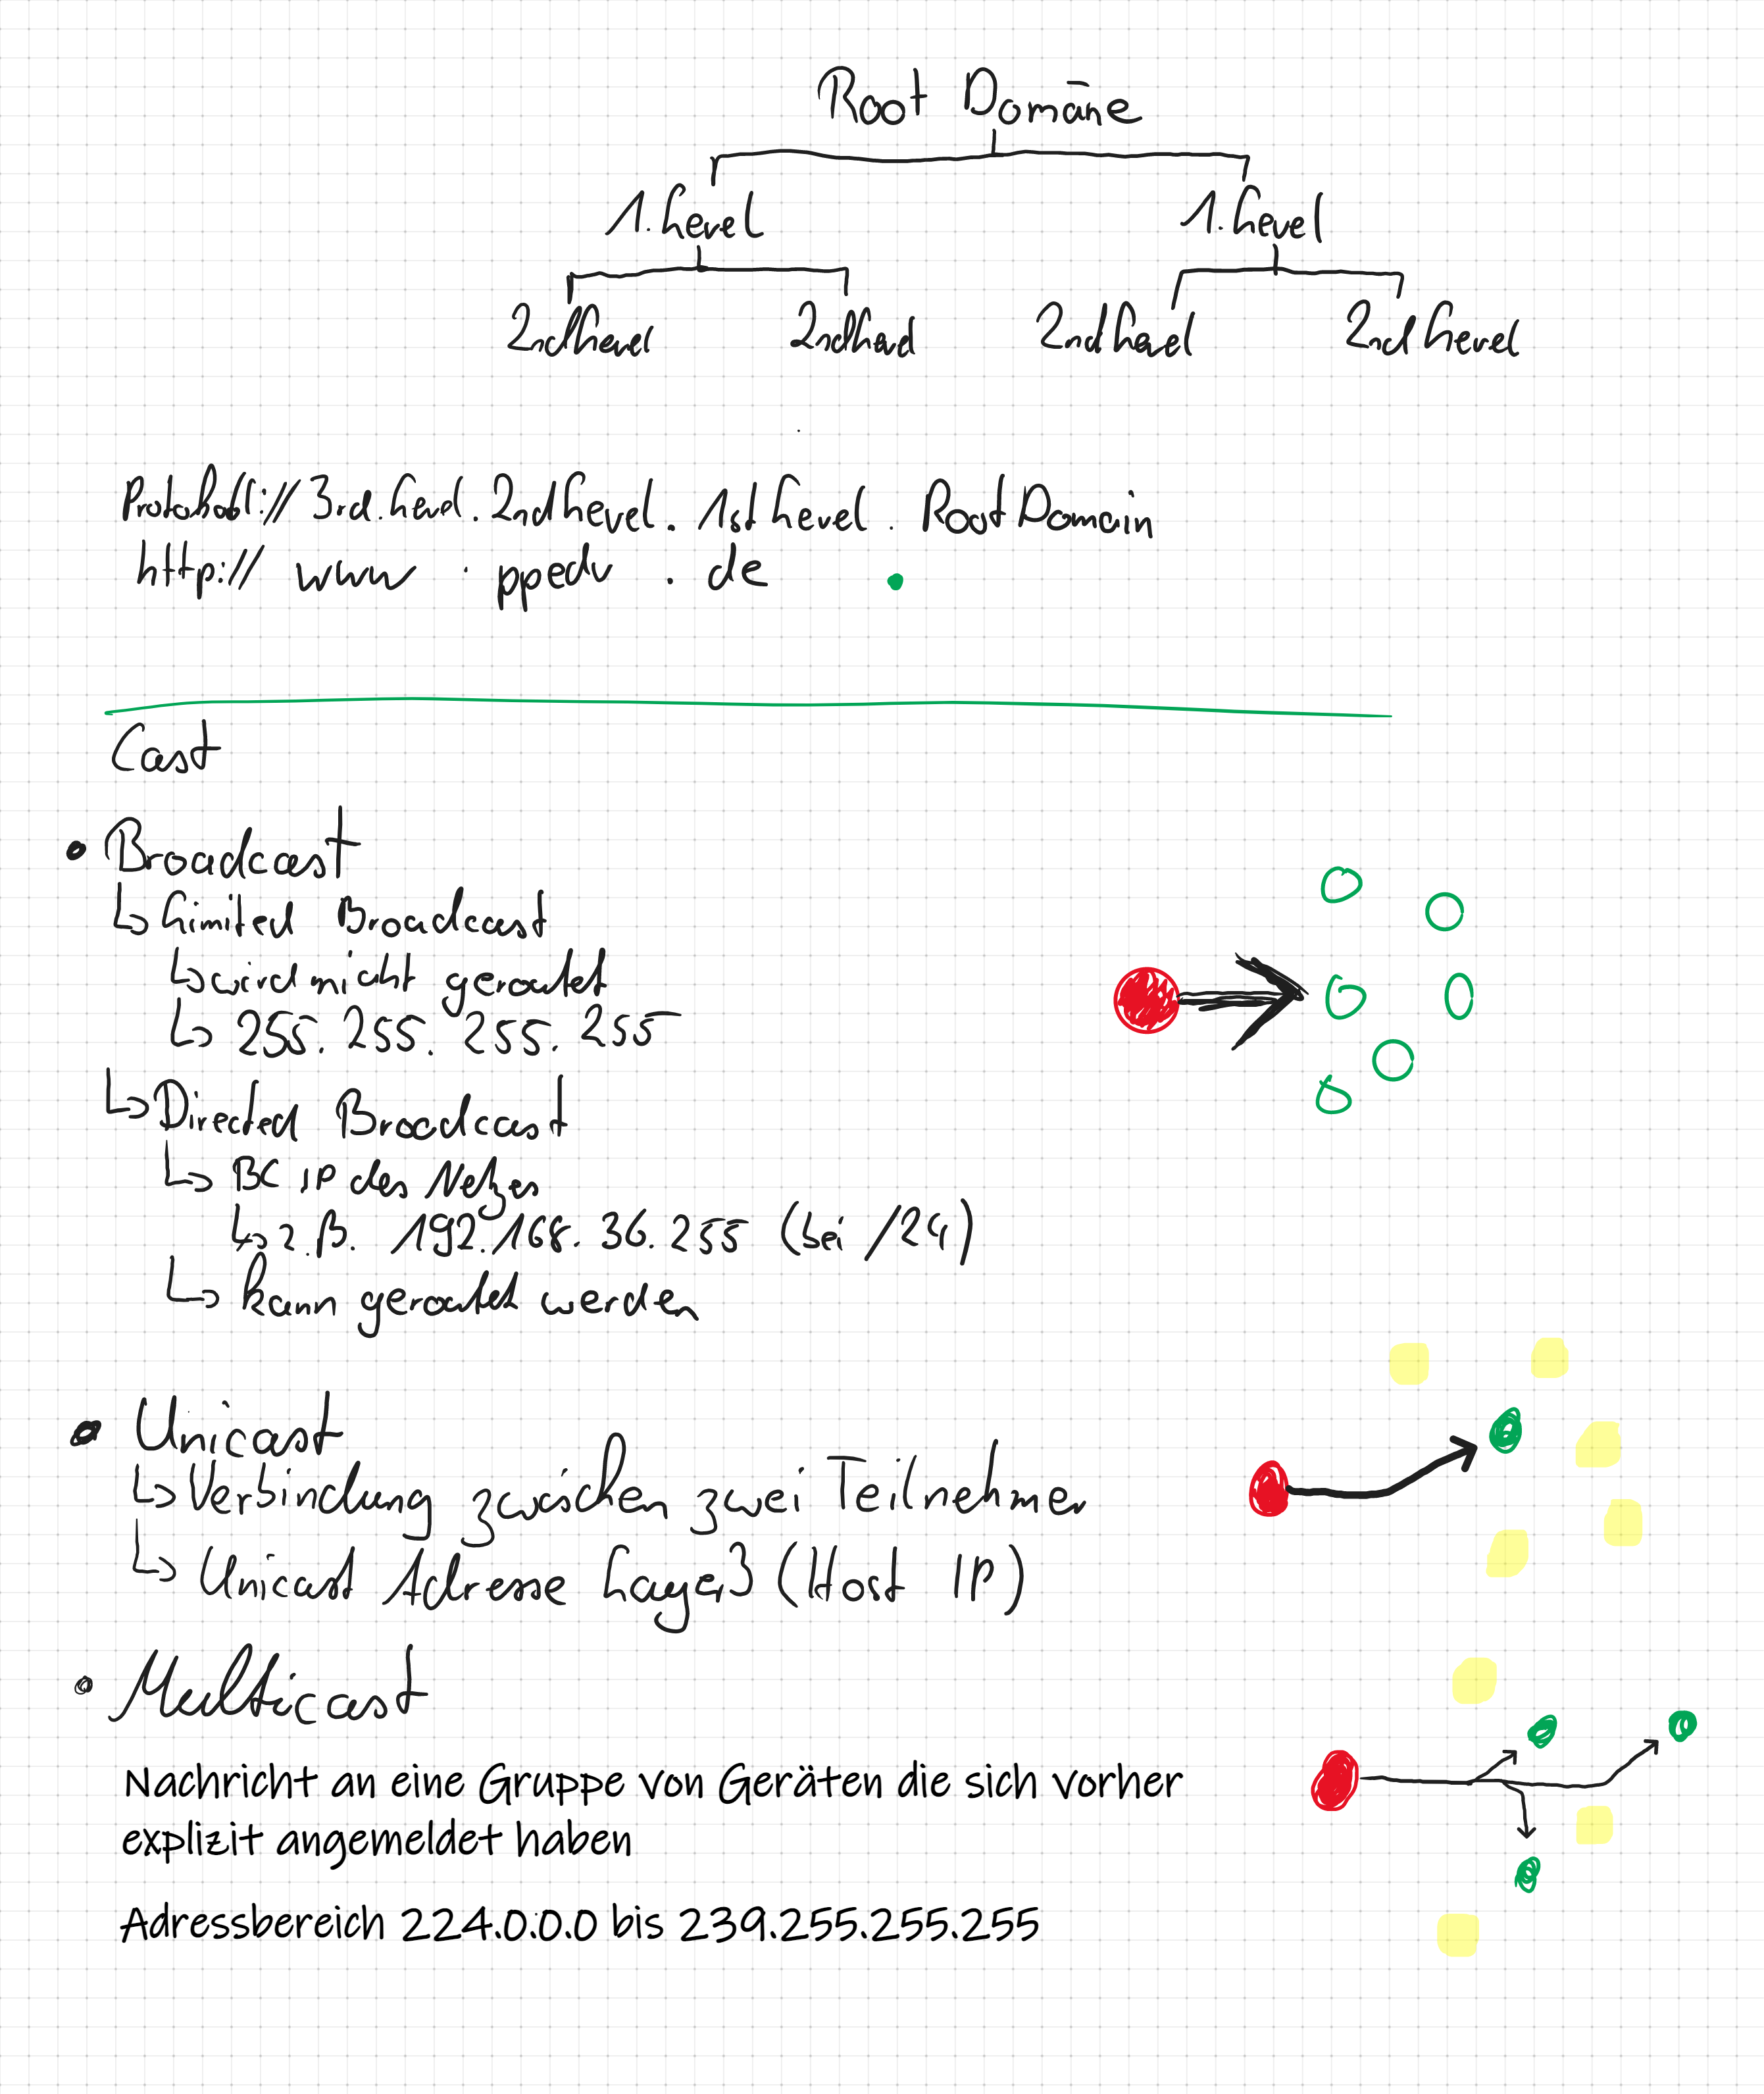 Root Domäne
1. Level 1. Level
2nd Level 2nd Level 2nd Level 2nd Level
Protokoll:// 3rd. Level. 2nd Level. 1st Level. Root Domain
http:// www . ppedv . de .
Cast
• Broadcast
↳ Limited Broadcast
↳ wird nicht geroutet
↳ 255.255.255.255
↳ Directed Broadcast
↳ BC IP des Netzes
↳ z.B. 192.168.36.255 (bei /24)
↳ kann geroutet werden
• Unicast
↳ Verbindung zwischen zwei Teilnehmer
↳ Unicast Adresse Layer3 (Host IP)
• Multicast
Nachricht an eine Gruppe von Geräten die sich vorher
explizit angemeldet haben
Adressbereich 224.0.0.0 bis 239.255.255.255